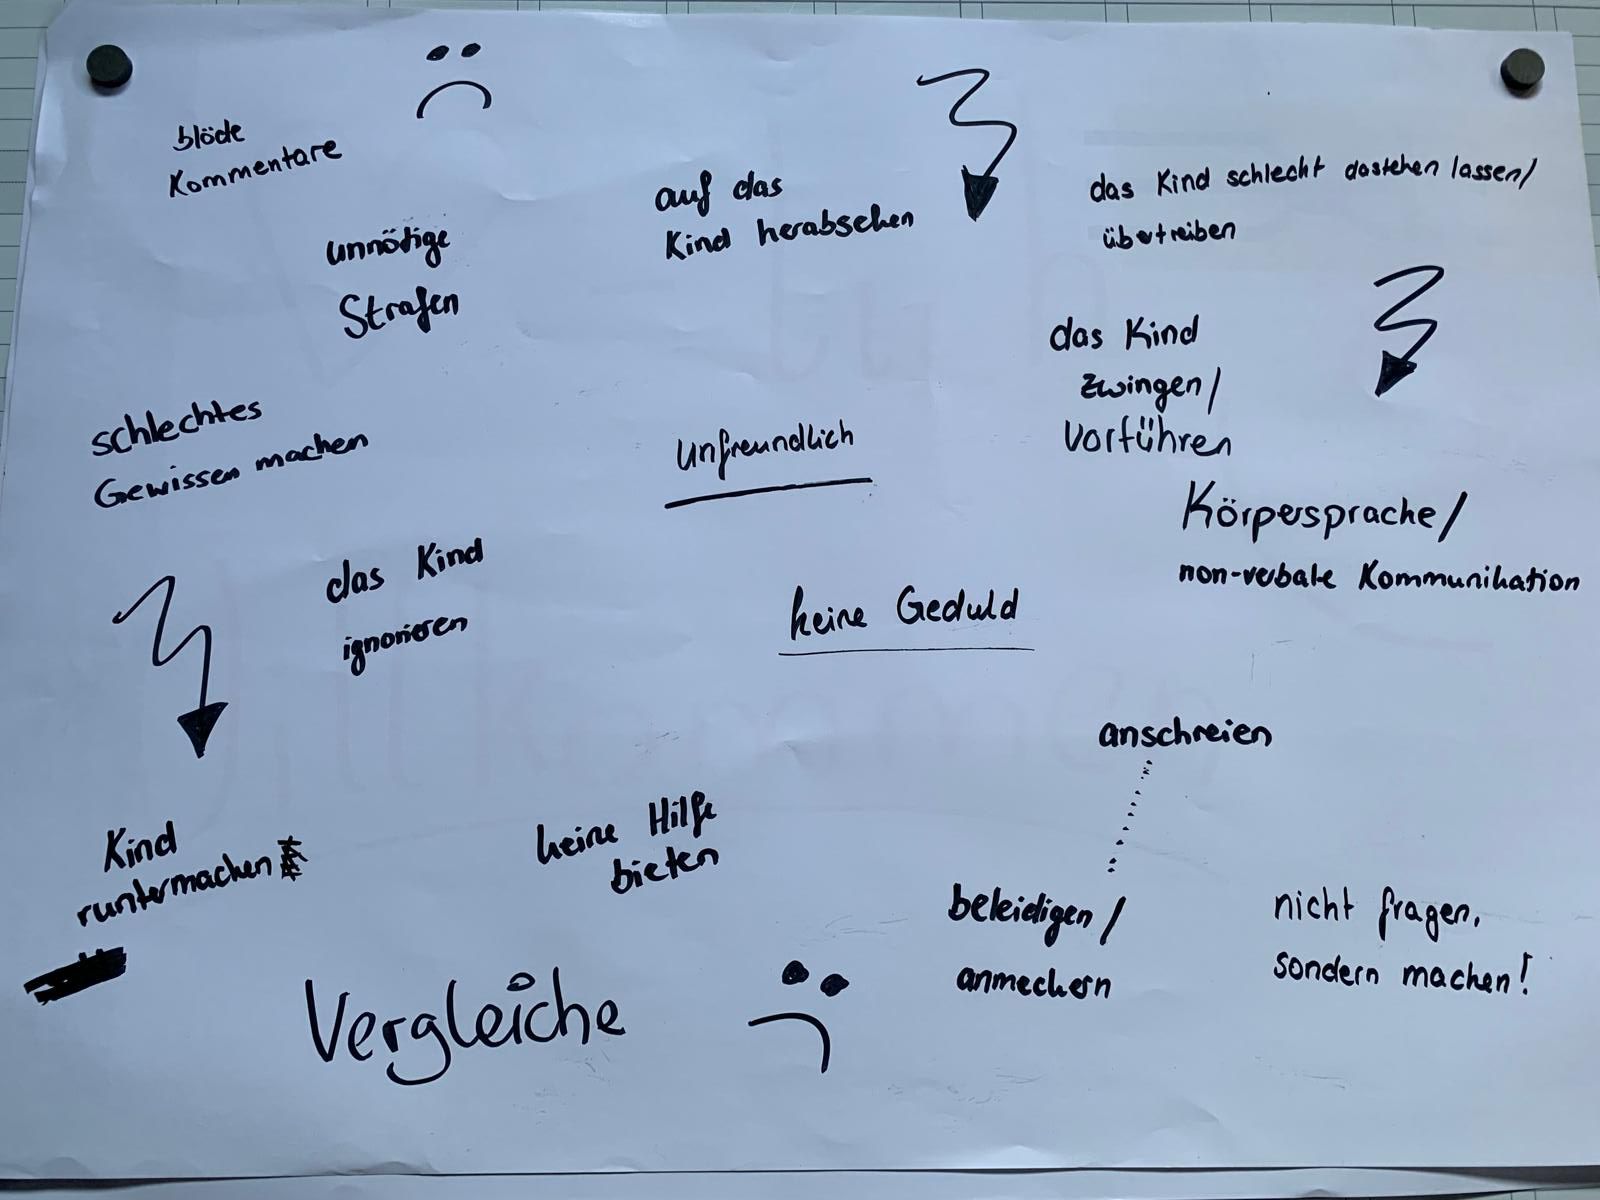 blöde
Kommentare
unnötige
Strafen
auf das
Kind herabsehen
das Kind schlecht dastehen lassen/
übertreiben
das Kind
zwingen/
vorführen
schlechtes
Gewissen machen
unfreundlich
Körpersprache/
non-verbale Kommunikation
das Kind
ignorieren
keine Geduld
anschreien
Kind
runtermachen
keine Hilfe
bieten
beleidigen/
anmeckern
nicht fragen,
sondern machen!
Vergleiche